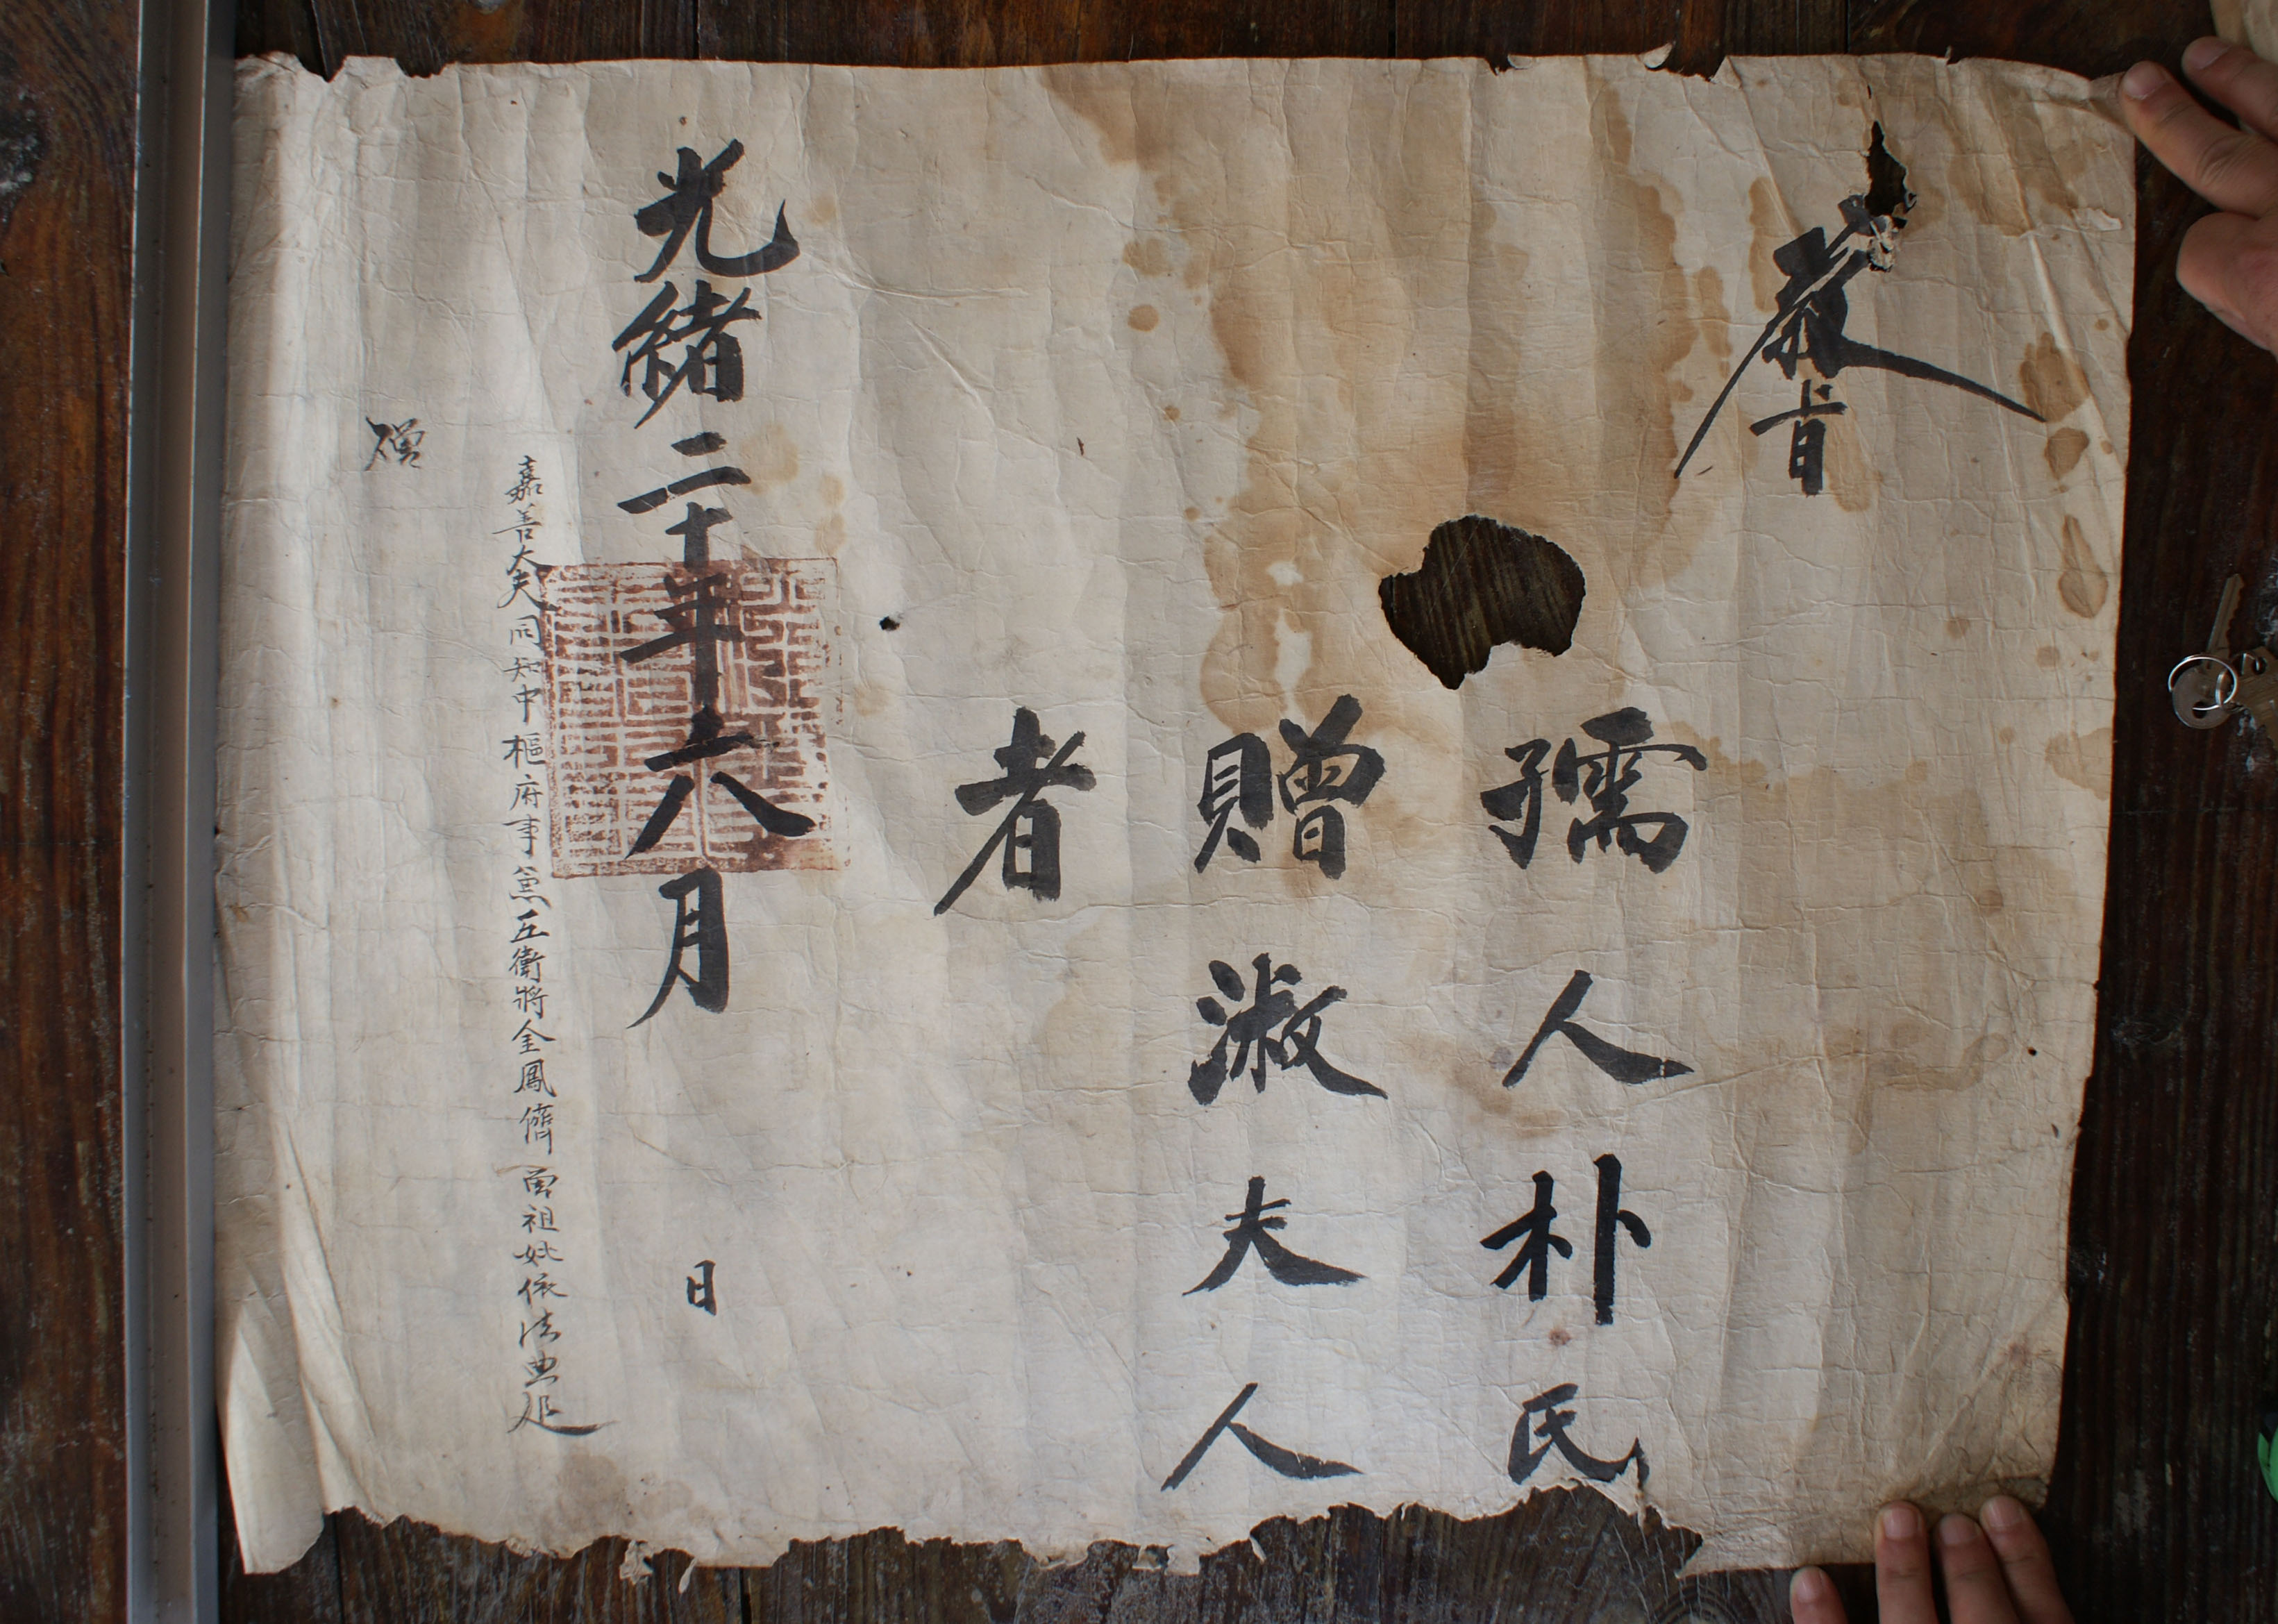 教旨
孺人朴氏
贈淑夫人
者
光緖二十年六月 日
嘉善大夫同知中樞府事兼五衛將金鳳儕曾祖妣依法典追
贈